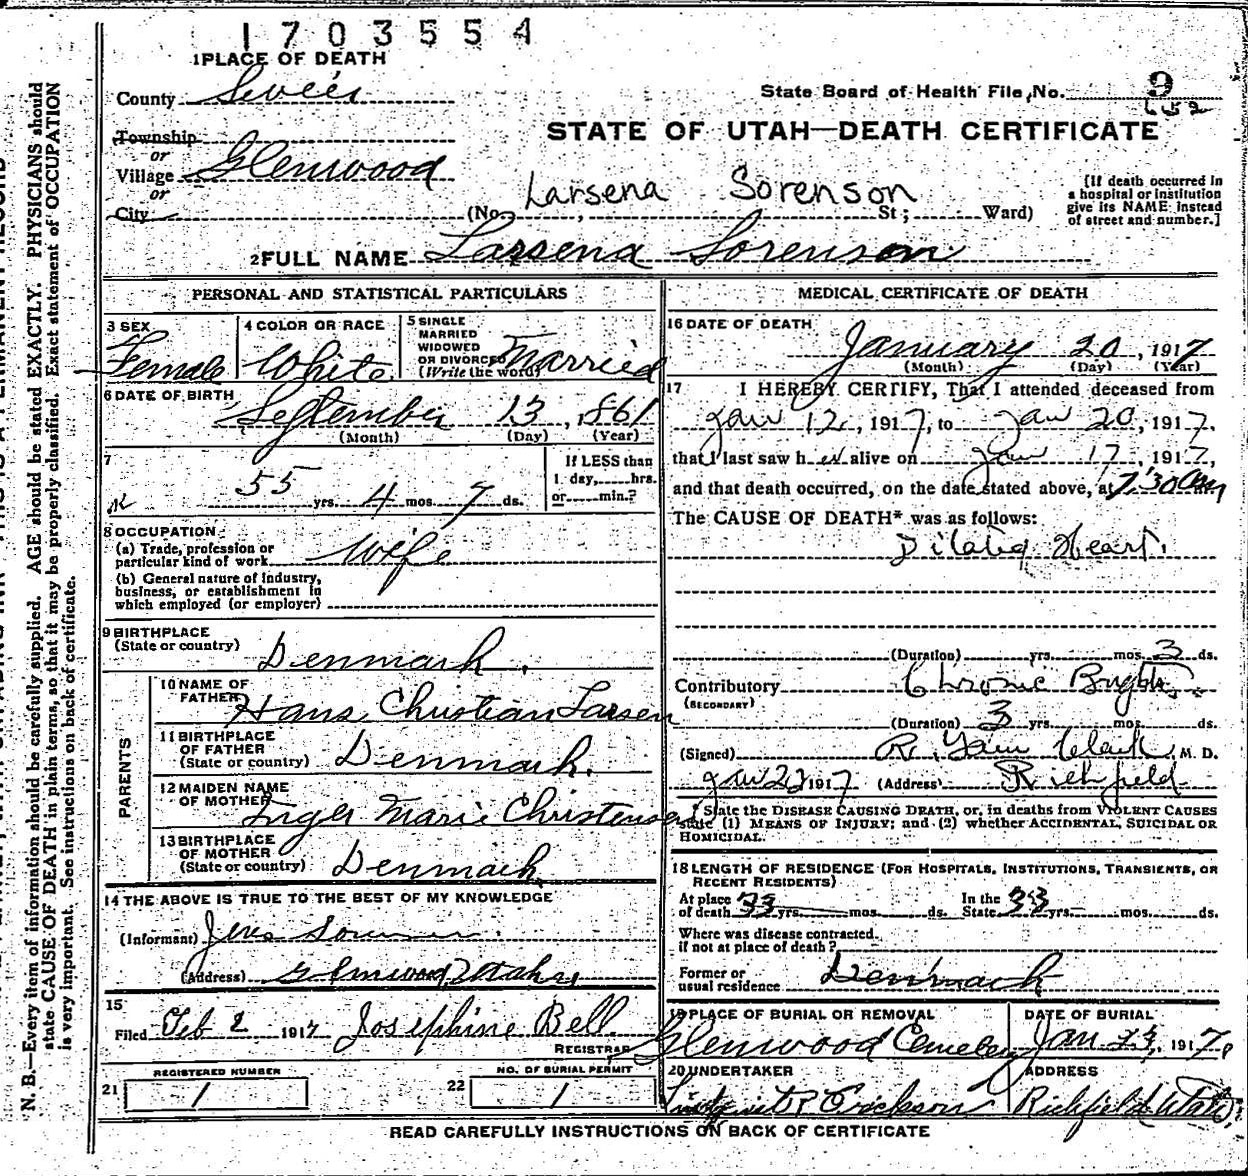 1703554
1 PLACE OF DEATH
County Sevier
State Board of Health File No. 9
652
STATE OF UTAH—DEATH CERTIFICATE
Township
or
Village Glenwood
or
City
Larsena Sorenson
(No. , St; Ward)
[If death occurred in
a hospital or institution
give its NAME instead
of street and number.]
2 FULL NAME Larsena Sorenson
PERSONAL AND STATISTICAL PARTICULARS
3 SEX
Female
4 COLOR OR RACE
White
5 SINGLE
MARRIED
WIDOWED
OR DIVORCED
(Write the word) Married
6 DATE OF BIRTH
September 13, 1861
(Month) (Day) (Year)
7
55 yrs. 4 mos. 7 ds.
If LESS than
1 day, hrs.
or min.?
8 OCCUPATION
(a) Trade, profession or
particular kind of work Wife
(b) General nature of industry,
business, or establishment in
which employed (or employer)
9 BIRTHPLACE
(State or country) Denmark.
PARENTS
10 NAME OF
FATHER Hans Christian Larsen
11 BIRTHPLACE
OF FATHER
(State or country) Denmark.
12 MAIDEN NAME
OF MOTHER Inger Marie Christensen
13 BIRTHPLACE
OF MOTHER
(State or country) Denmark
14 THE ABOVE IS TRUE TO THE BEST OF MY KNOWLEDGE
(Informant) Jens
(Address) Glenwood Utah
15
Filed Feb 2 1917 Josephine Bell
REGISTRAR
21 REGISTERED NUMBER
1
22 NO. OF BURIAL PERMIT
1
MEDICAL CERTIFICATE OF DEATH
16 DATE OF DEATH
January 20, 1917
(Month) (Day) (Year)
17 I HEREBY CERTIFY, That I attended deceased from
Jan 12, 1917, to Jan 20, 1917,
that I last saw her alive on Jan 17, 1917,
and that death occurred, on the date stated above, at 7:30 am
The CAUSE OF DEATH* was as follows:
Dilated Heart.
(Duration) yrs. mos. 3 ds.
Contributory Chronic Brights
(SECONDARY)
(Duration) 3 yrs. mos. ds.
(Signed) R. Clark M. D.
Jan 1917 (Address) Richfield
* State the DISEASE CAUSING DEATH, or, in deaths from VIOLENT CAUSES
state (1) MEANS OF INJURY; and (2) whether ACCIDENTAL, SUICIDAL OR
HOMICIDAL.
18 LENGTH OF RESIDENCE (FOR HOSPITALS, INSTITUTIONS, TRANSIENTS, OR
RECENT RESIDENTS)
At place
of death 33 yrs. mos. ds.
In the
State 33 yrs. mos. ds.
Where was disease contracted
if not at place of death?
Former or
usual residence Denmark
19 PLACE OF BURIAL OR REMOVAL
Glenwood Cemetery
DATE OF BURIAL
Jan. 23, 1917
20 UNDERTAKER
P Erickson
ADDRESS
Richfield Utah
READ CAREFULLY INSTRUCTIONS ON BACK OF CERTIFICATE
N. B.—Every item of information should be carefully supplied. AGE should be stated EXACTLY. PHYSICIANS should
state CAUSE OF DEATH in plain terms, so that it may be properly classified. Exact statement of OCCUPATION
is very important. See instructions on back of certificate.